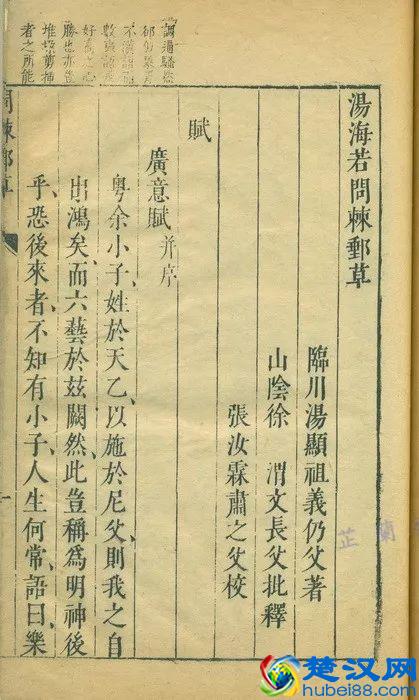 湯海若問棘郵草
臨川湯顯祖義仍父著
山陰徐渭文長父批釋
張汝霖肅之父校
賦
廣意賦并序
粵余小子、姓於天乙、以施於尼父、則我之自
出鴻矣、而六藝於茲闕然、此豈稱為明神後
乎、恐後來者、不知有小子、人生何常、語曰、樂
者之所能
問棘郵草
一
芷蘭
楚汉网
hubei88.com